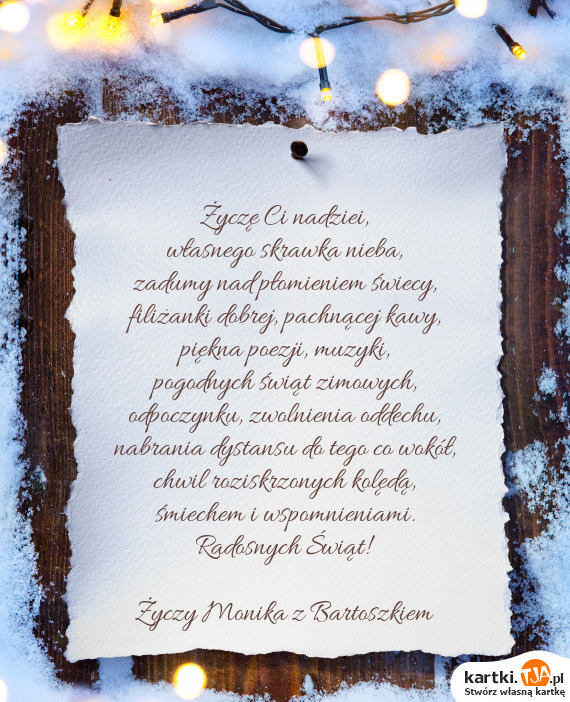 Życzę Ci nadziei,
własnego skrawka nieba,
zadumy nad płomieniem świecy,
filiżanki dobrej, pachnącej kawy,
piękna poezji, muzyki,
pogodnych świąt zimowych,
odpoczynku, zwolnienia oddechu,
nabrania dystansu do tego co wokół,
chwil roziskrzonych kolędą,
śmiechem i wspomnieniami.
Radosnych Świąt!
Życzy Monika z Bartoszkiem
kartki.TJA.pl
Stwórz własną kartkę